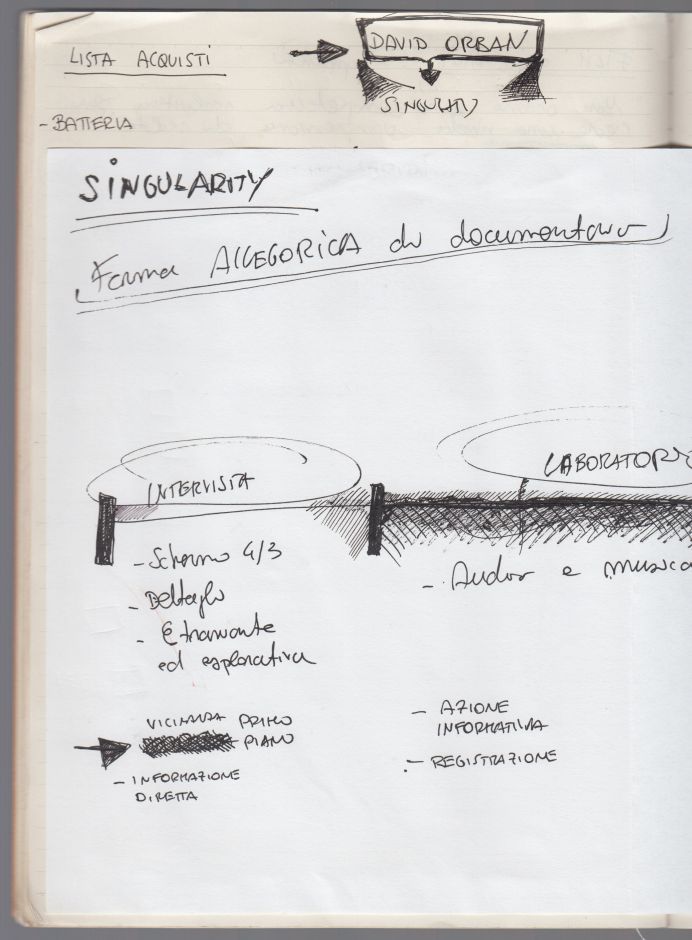 LISTA ACQUISTI
DAVID ORBAN
- BATTERIA
SINGULARITY
Forma ALLEGORICA di
INTERVISTA
LABORATORI
- Schermo 4/3
- Dettaglio
-
ed esplorativa
- Audio e musica
VICINANZA PRIMO
PIANO
- INFORMAZIONE
DIRETTA
- AZIONE
INFORMATIVA
- REGISTRAZIONE